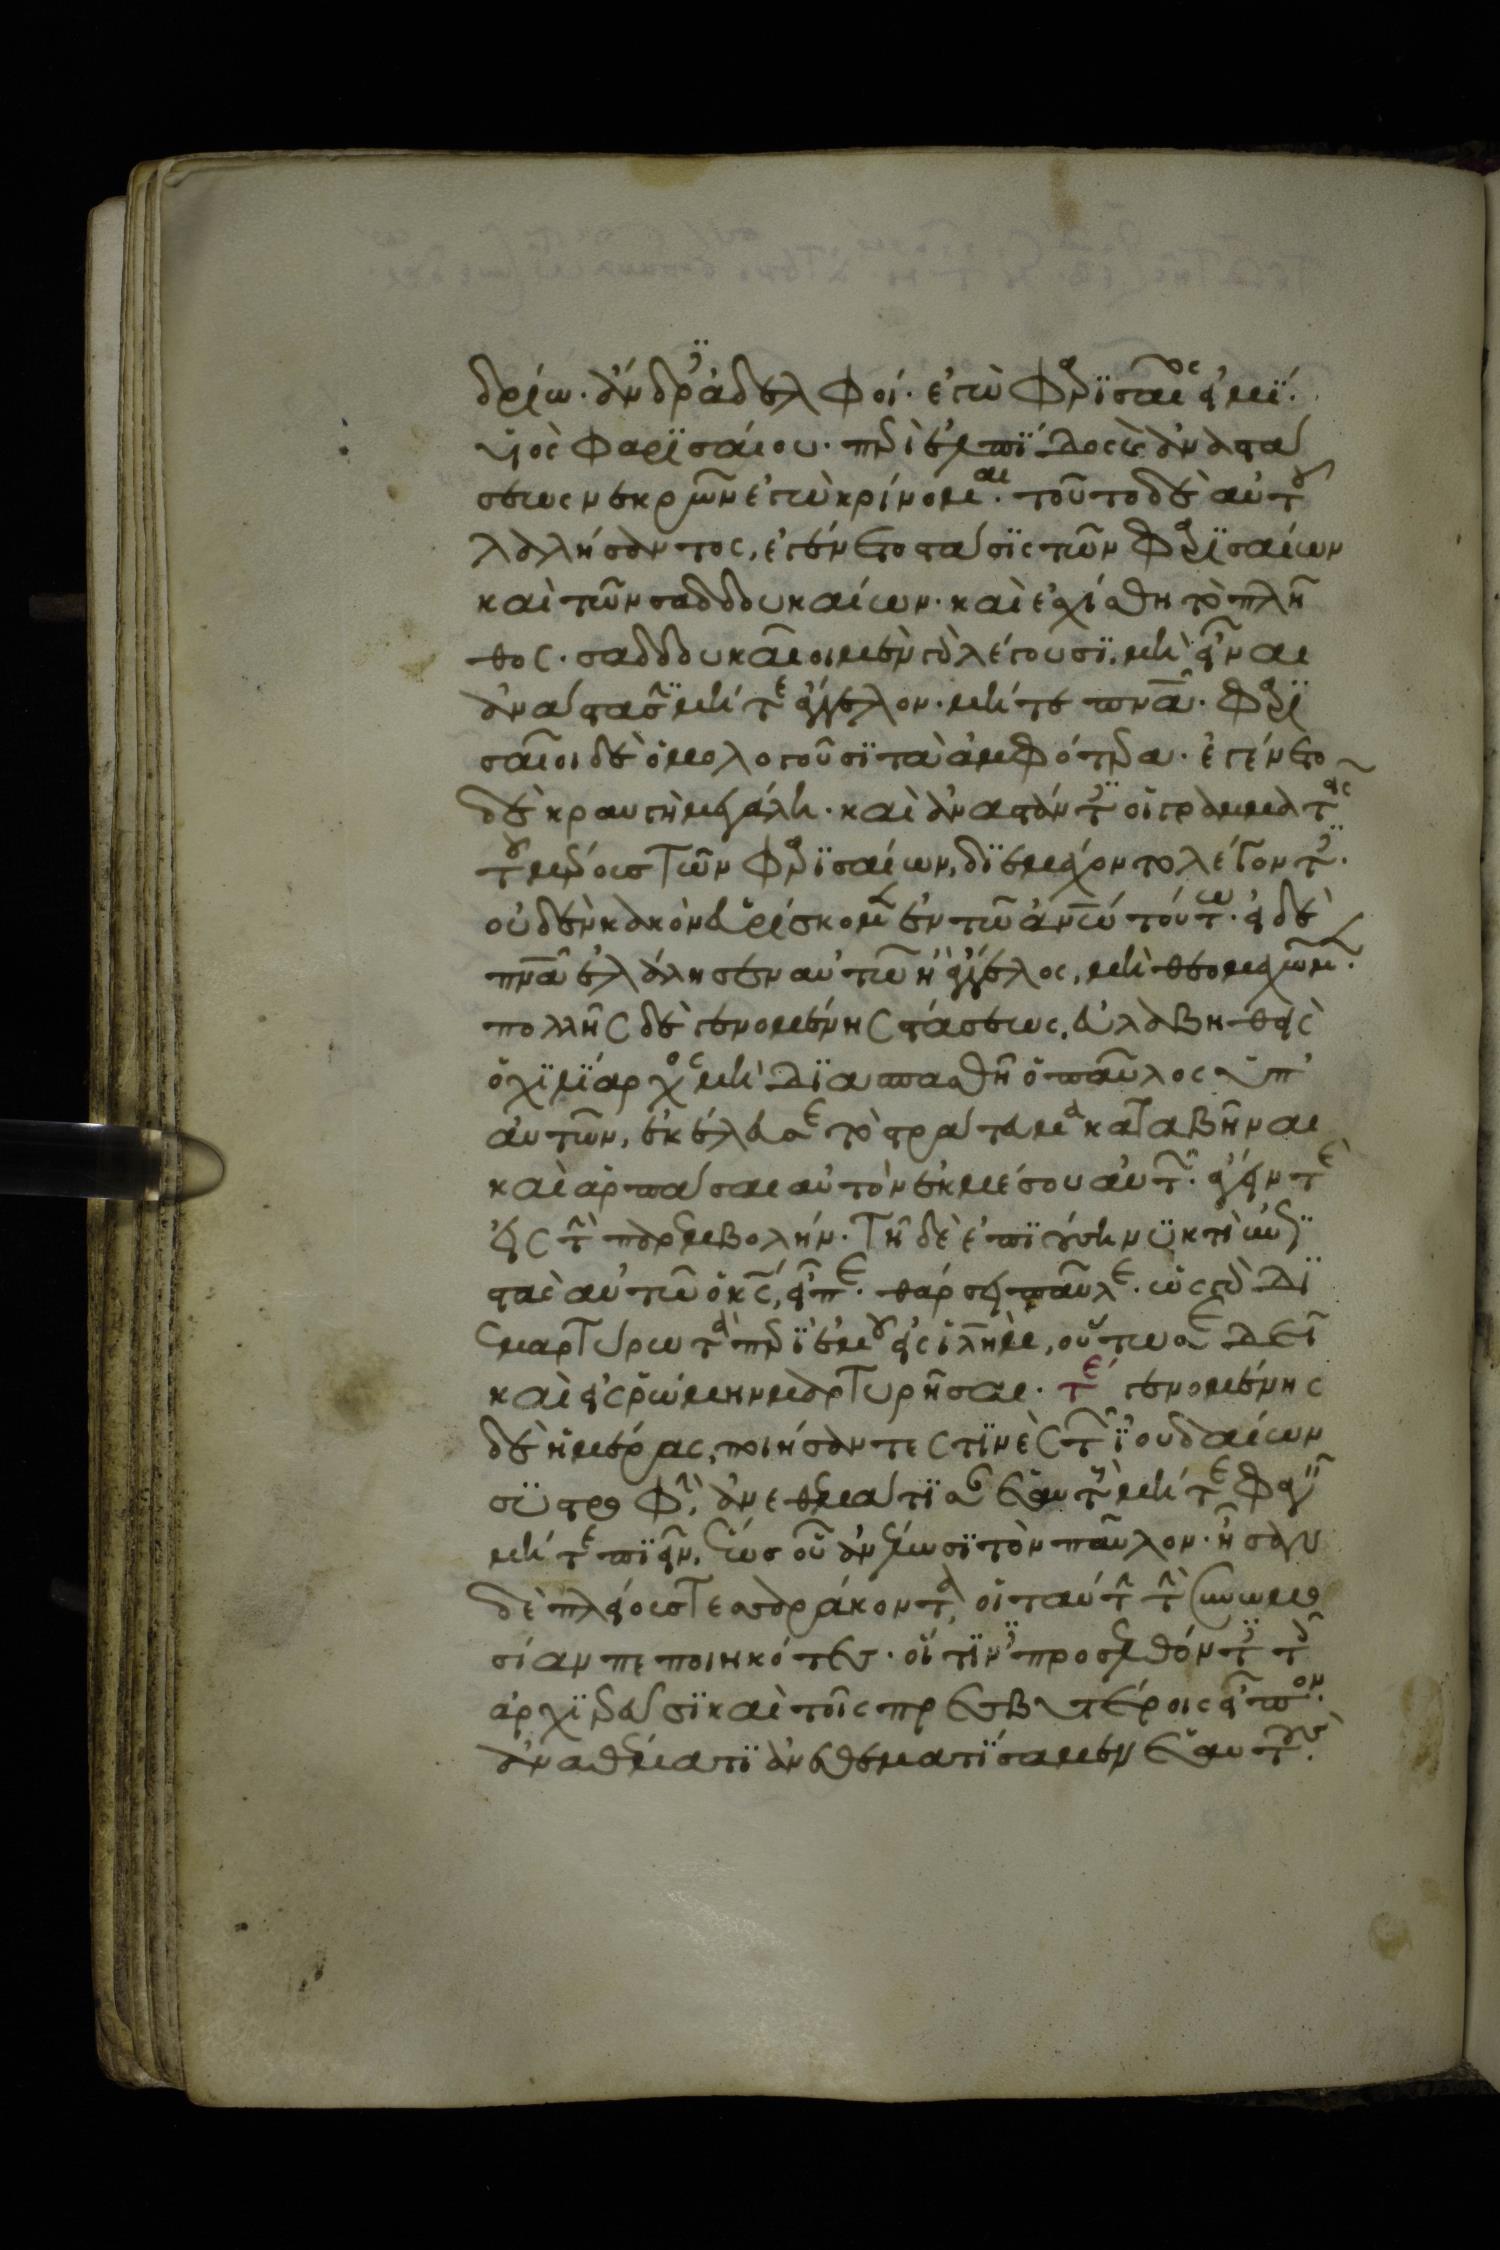 δρίω· ἄνδρες ἀδελφοί· ἐγὼ φαρισαῖος εἰμί·
υἱὸς φαρισαίου· περὶ ἐλπίδος καὶ ἀναστά
σεως νεκρῶν ἐγὼ κρίνομαι· τοῦτο δὲ αὐτοῦ
λαλήσαντος, ἐγένετο στάσις τῶν φαρισαίων
καὶ τῶν σαδδουκαίων· καὶ ἐσχίσθη τὸ πλῆ
θος· σαδδουκαῖοι μὲν γὰρ λέγουσι, μὴ εἶναι
ἀνάστασιν μήτε ἄγγελον· μήτε πνα· φαρι
σαῖοι δὲ ὁμολογοῦσι τὰ ἀμφότερα· ἐγένετο
δὲ κραυγὴ μεγάλη· καὶ ἀναστάντες οἱ γραμματεῖς
τοῦ μέρους τῶν φαρισαίων, διεμάχοντο λέγοντες·
οὐδὲν κακὸν εὑρίσκομεν ἐν τῶ ἀνῶ τούτω· εἰ δὲ
πνα ἐλάλησεν αὐτῶ ἢ ἄγγελος, μὴ θεομαχῶμεν·
πολλῆς δὲ γενομένης στάσεως, εὐλαβηθεὶς
ὁ χιλίαρχος μὴ διασπασθῆ ὁ παῦλος ὑπ'
αὐτῶν, ἐκέλευσε τὸ στράτευμα καταβῆναι
καὶ ἁρπάσαι αὐτὸν ἐκ μέσου αὐτῶν· ἄγειν τε
εἰς τὴν παρεμβολήν· Τῆ δὲ ἐπιούση νυκτὶ ἐπι
στὰς αὐτῶ ὁ κς, εἶπε· θάρσει παῦλε· ὡς γὰρ δι
εμαρτύρω τὰ περὶ ἐμοῦ εἰς ιλημ, οὕτω σε δεῖ
καὶ εἰς ῥώμην μαρτυρῆσαι· τέ γενομένης
δὲ ἡμέρας, ποιήσαντες τινὲς τῶν ἰουδαίων
συστροφὴν, ἀνεθεμάτισαν ἑαυτοὺς μήτε φαγεῖν
μήτε πιεῖν, ἕως οὗ ἀνέλωσι τὸν παῦλον· ἦσαν
δὲ πλείους τεσσαράκοντα, οἱ ταύτην τὴν συνωμο
σίαν πεποιηκότες· οἵτινες προσελθόντες τοῖς
ἀρχιερεῦσι καὶ τοῖς πρεσβυτέροις εἶπον·
ἀναθέματι ἀνεθεματίσαμεν ἑαυτοὺς